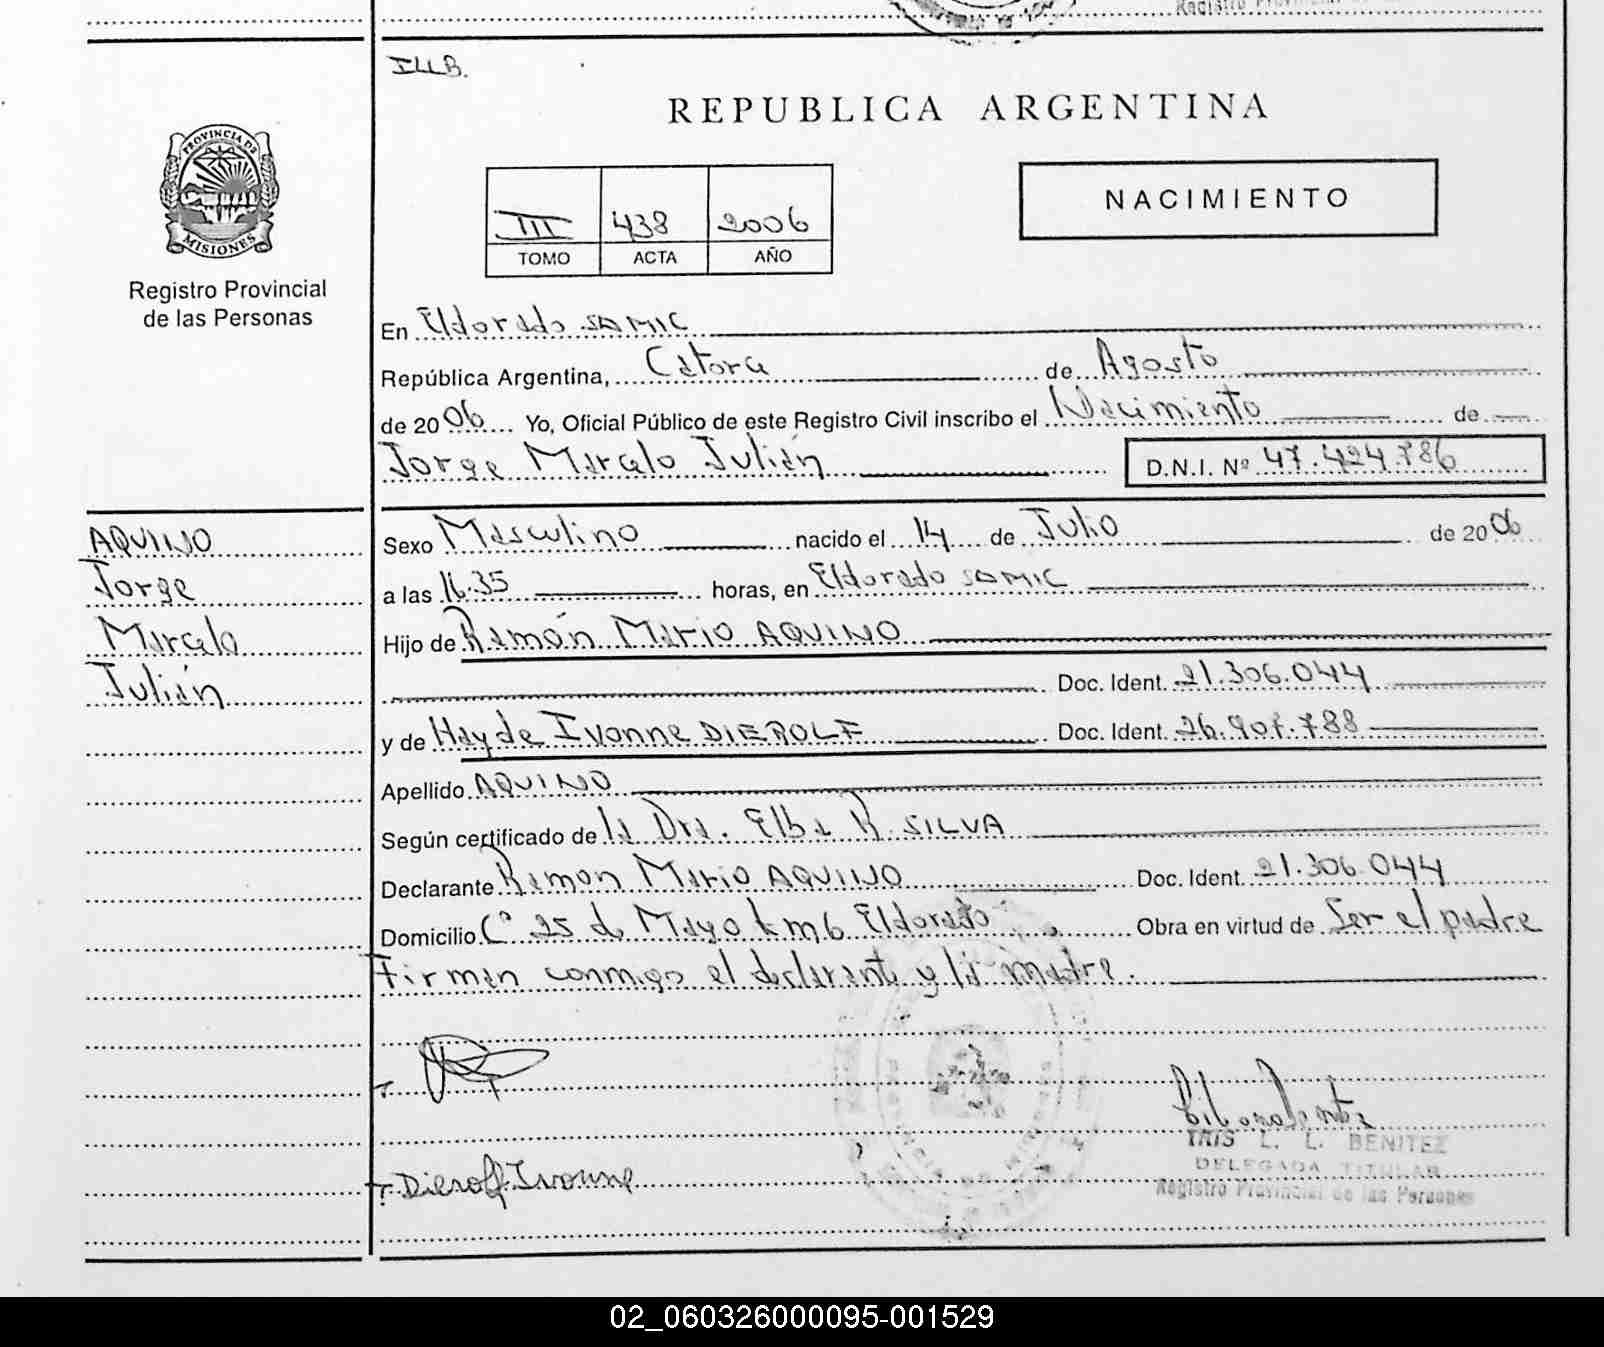 Registro Provincial
ILLB.
REPUBLICA ARGENTINA
PROVINCIA DE
MISIONES
Registro Provincial
de las Personas
III 438 2006
TOMO ACTA AÑO
NACIMIENTO
En Eldorado SAMIC
República Argentina, Catorce de Agosto
de 2006 Yo, Oficial Público de este Registro Civil inscribo el Nacimiento de
Jorge Marcelo Julián D.N.I. Nº 47.424.786
AQUINO
Jorge
Marcelo
Julián
Sexo Masculino nacido el 14 de Julio de 2006
a las 16.35 horas, en Eldorado SAMIC
Hijo de Ramón Mario AQUINO
Doc. Ident. 21.306.044
y de Hayde Ivonne DIEROLF Doc. Ident. 26.907.788
Apellido AQUINO
Según certificado de la Dra. Elba R. SILVA
Declarante Ramon Mario AQUINO Doc. Ident. 21.306.044
Domicilio Cº 25 de Mayo km6 Eldorado Obra en virtud de Ser el padre
Firman conmigo el declarante y la madre.
Dierolf Ivonne
IRIS L. L. BENITEZ
DELEGADA TITULAR
Registro Provincial de las Personas
02_060326000095-001529